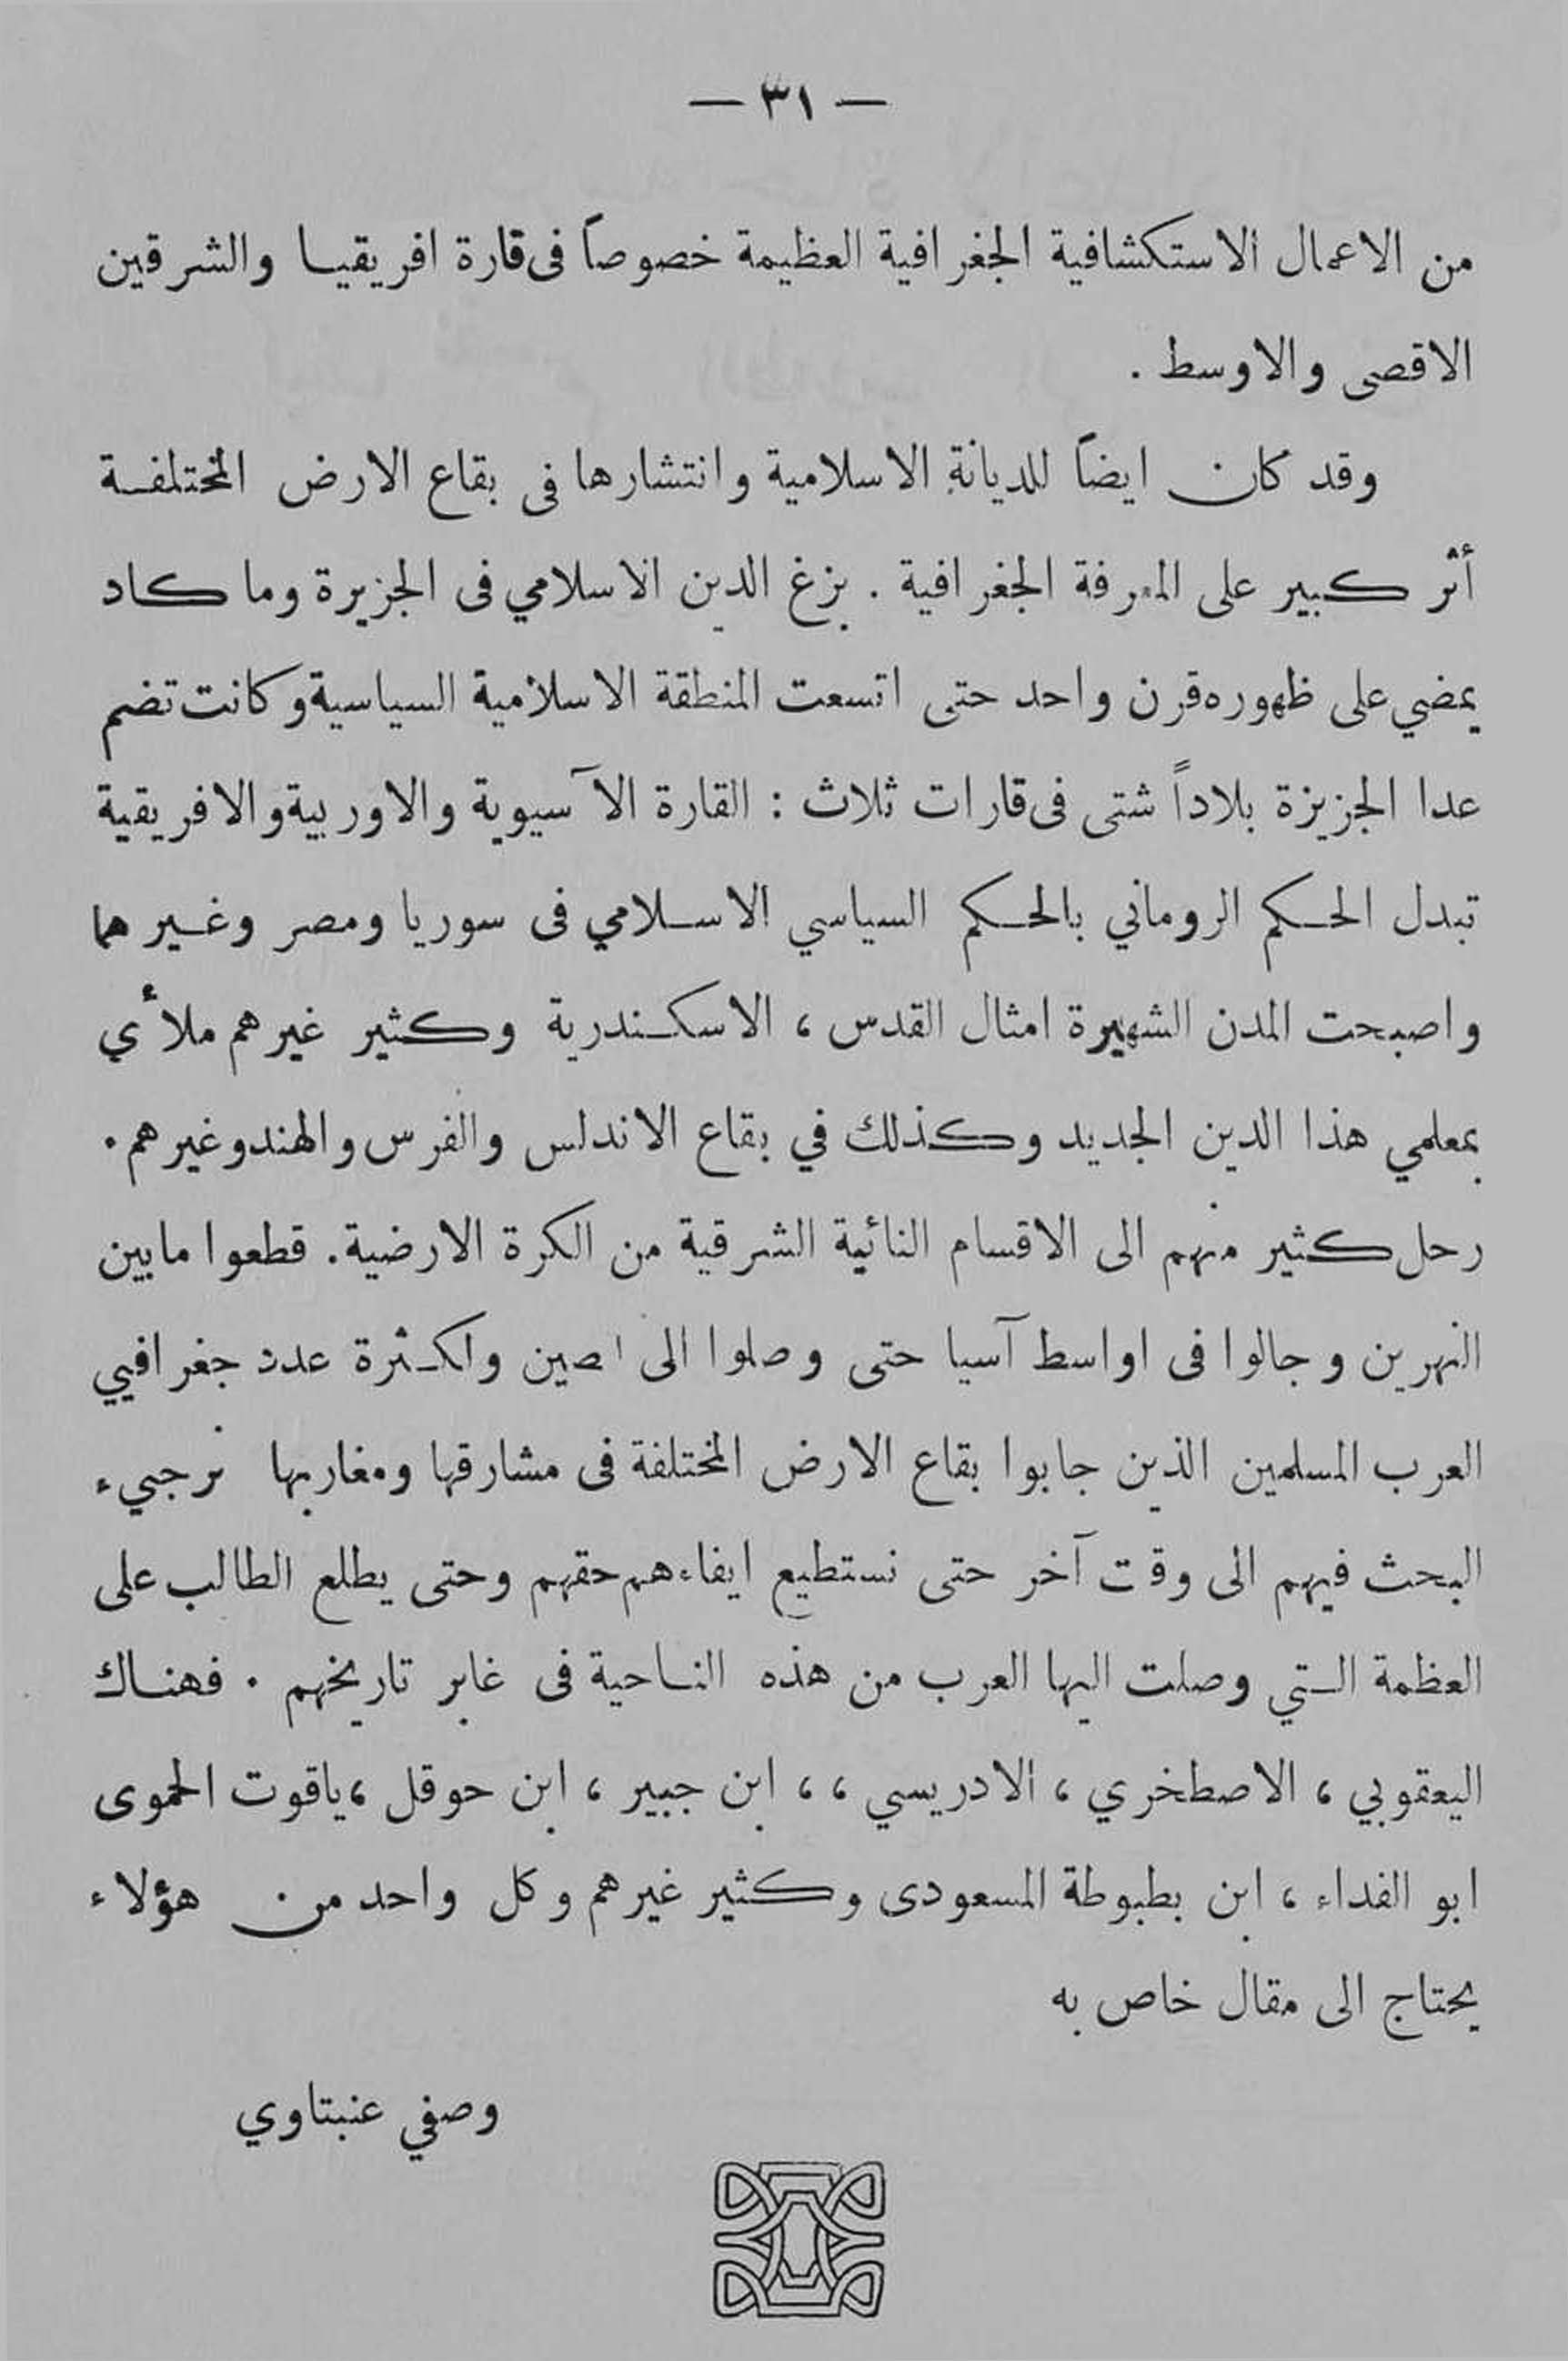 — ٣١ —
من الاعمال الاستكشافية الجغرافية العظيمة خصوصاً فى قارة افريقيا والشرقين
الاقصى والاوسط .
وقد كان ايضاً للديانة الاسلامية وانتشارها فى بقاع الارض المختلفة
أثر كبير على المعرفة الجغرافية . بزغ الدين الاسلامي فى الجزيرة وما كاد
يمضي على ظهوره قرن واحد حتى اتسعت المنطقة الاسلامية السياسية وكانت تضم
عدا الجزيزة بلاداً شتى فى قارات ثلاث : القارة الآسيوية والاوربية والافريقية
تبدل الحكم الروماني بالحكم السياسي الاسلامي فى سوريا ومصر وغيرهما
واصبحت المدن الشهيرة امثال القدس ، الاسكندرية وكثير غيرهم ملأي
بمعلمي هذا الدين الجديد وكذلك في بقاع الاندلس والفرس والهند وغيرهم .
رحل كثير منهم الى الاقسام النائية الشرقية من الكرة الارضية . قطعوا مابين
النهرين وجالوا فى اواسط آسيا حتى وصلوا الى الصين ولكثرة عدد جغرافيي
العرب المسلمين الذين جابوا بقاع الارض المختلفة فى مشارقها ومغاربها نرجيء
البحث فيهم الى وقت آخر حتى نستطيع ايفاءهم حقهم وحتى يطلع الطالب على
العظمة التي وصلت اليها العرب من هذه الناحية فى غابر تاريخهم . فهناك
اليعقوبي ، الاصطخري ، الادريسي ، ، ابن جبير ، ابن حوقل ، ياقوت الحموى
ابو الفداء ، ابن بطبوطة المسعودى وكثير غيرهم وكل واحد من هؤلاء
يحتاج الى مقال خاص به
وصفي عنبتاوي